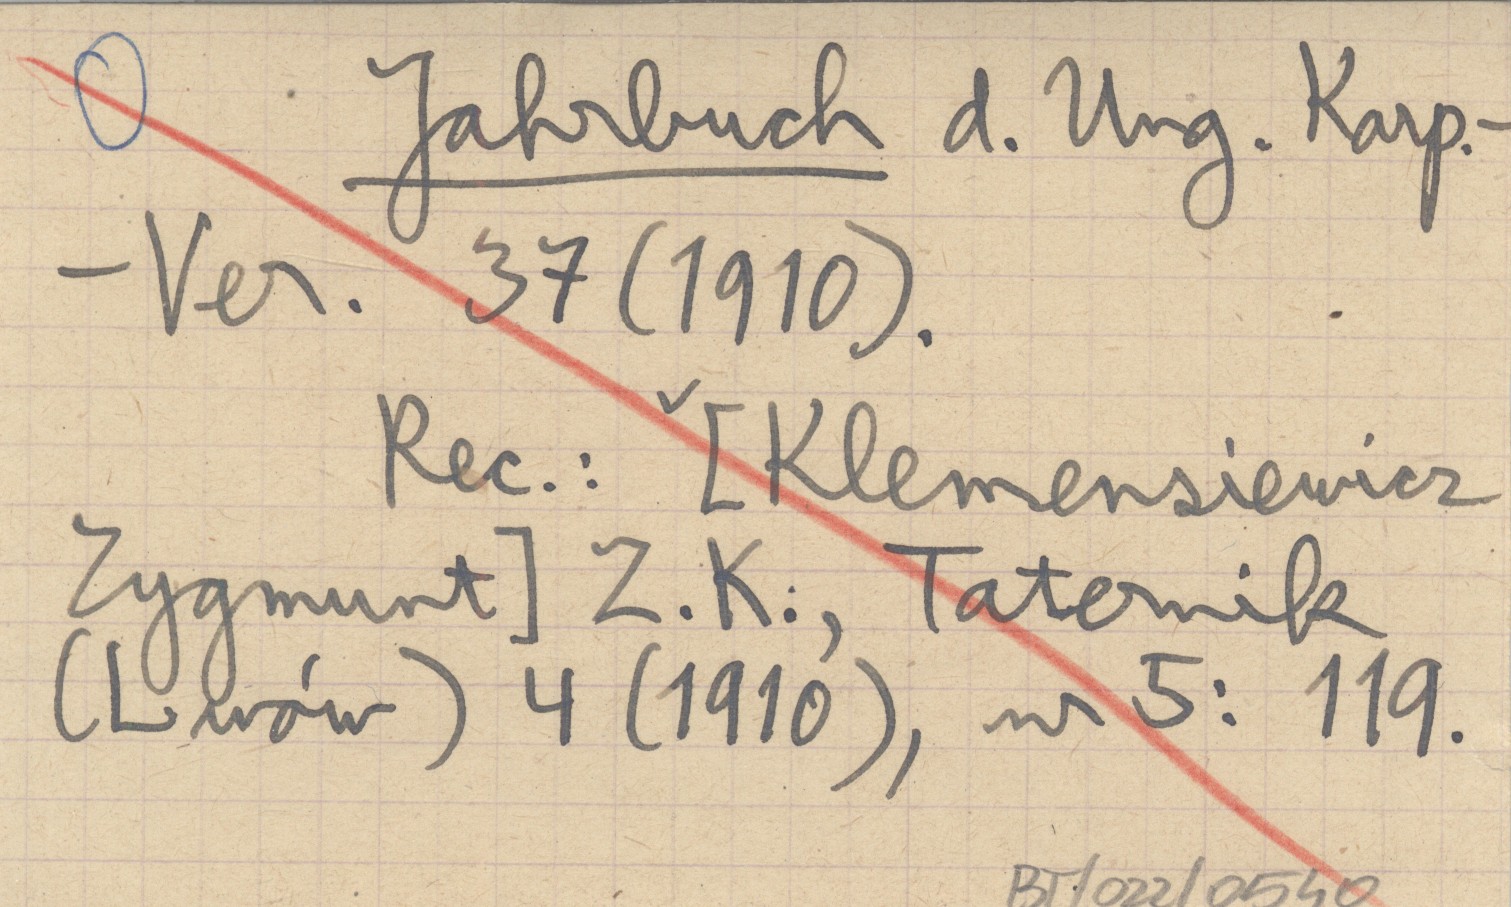 Jahrbuch d. Ung. Karp.-
-Ver. 37 (1910).
Rec.: [Klemensiewicz
Zygmunt] Z.K., Taternik
(Lwów) 4 (1910), nr 5: 119.
BT/022/0540